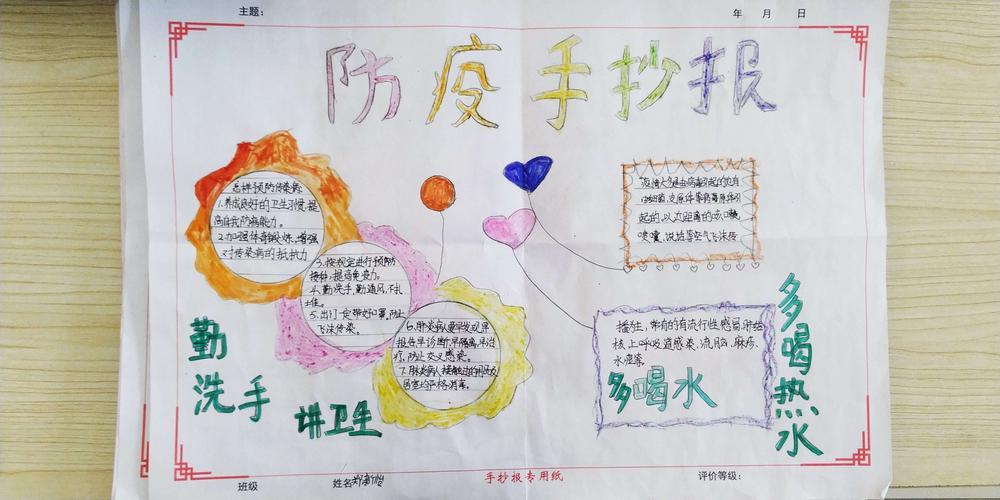 主题：
年 月 日
防疫手抄报
怎样预防传染病：
1.养成良好的卫生习惯，提
高自我防病能力。
2.加强体育锻炼，增强
对传染病的抵抗力
3.按规定进行预防
接种，提高免疫力。
4.勤洗手，勤通风，不扎
堆。
5.出门一定带好口罩，防止
飞沫传染。
6.肺炎病人要早发现，早
报告，早诊断，早隔离，早治
疗，防止交叉感染。
7.肺炎病人接触过的用品及
居室均严格消毒。
疫情大多是由病毒引起的也有
起的，以近距离的咳嗽，
喷嚏，说话等空气飞沫传
播为主，常有的有流行性感冒，肺结
核，上呼吸道感染，流脑，麻疹，
水痘等。
多喝水
多喝热水
勤
洗手
讲卫生
班级
姓名
手抄报专用纸
评价等级：